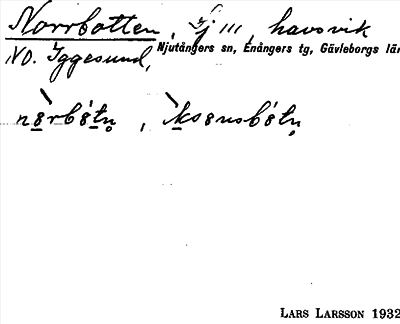 Norrbotten, Lj III, havsvik
NO. Iggesund, Njutångers sn, Enångers tg, Gävleborgs län
Lars Larsson 1932